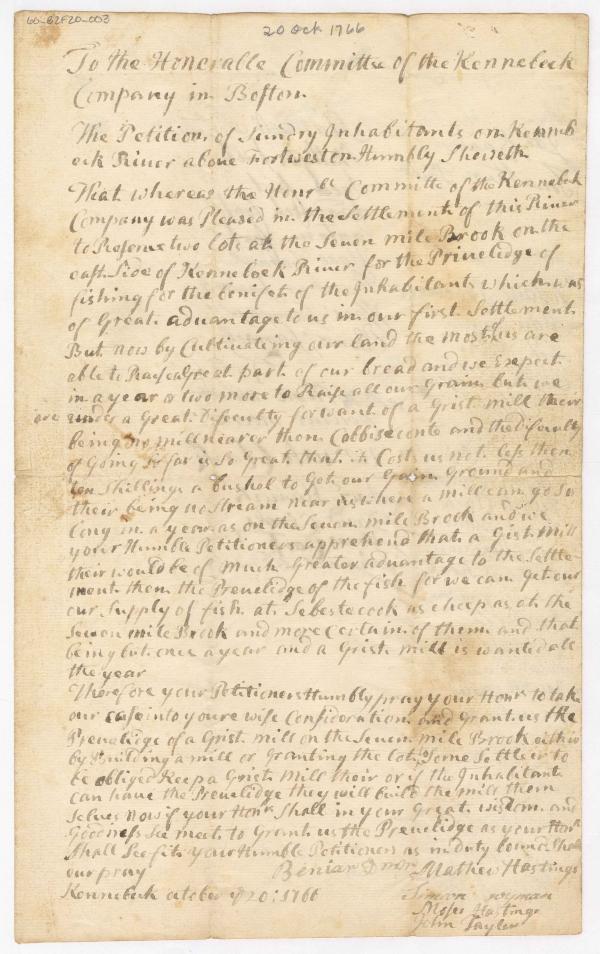 60-B2F20-003
20 Oct 1766
To the Honeralle Committee of the Kennebeck
Company in Boston
The Petition of Sundry Inhabitants on Kenneb
eck River above Fortweston Humbly Sheweth
That whereas the Honrble Committe of the Kennebek
Company was Pleased in the Settlement of this River
to Reserve two lots at the Seven mile Brook on the
east Side of Kennebeck River for the Privelidge of
fishing for the benifet of the Inhabitants which was
of Great advantage to us in our first Settlement
But now by Cultivateing our land the most of us are
able to Raise a Great part of our bread and we Expect
in a year or two more to Raise all our Grain but we
are under a Great Difeculty for want of a Grist mill their
being no mill nearer then Cobbiseconte and the Difeculty
of Going So far is So Great that it Cost us not less then
ten Shillings a bushel to Get our Grain Ground and
their being no Stream near us where a mill can go So
long in a year as on the Seven mile Brook and we
your Humble Petitioners apprehend that a Gist Mill
their would be of much Greater advantage to the Settle-
ment then the Prevelidge of the fish for we can Get our
our Supply of fish at Sebestecook as cheep as at the
Seven mile Brook and more Certain of them and that
being but once a year and a Grist mill is wanted all
the year
Therefore your Petitioners Humbly pray your Honrs to take
our case into youre wise Consideration and Grant us the
Prevelidge of a Grist mill on the Seven mile Brook either
by Building a mill or Granting the lots Some Settler to
be obliged Keep a Grist Mill their or if the Inhabitants
can have the Prevelidge they will build the mill them
Selves Now if your Honrs Shall in your Great wisdom and
Goodness See meet to Grant us the Prevelidge as your Honrs
Shall See fit your Humble Petitioners as in duty bound Shall
our pray
Mathew Hastings
Kennebeck october 20: 1766
Simeon wyman
Moses Hastings
John Taylor